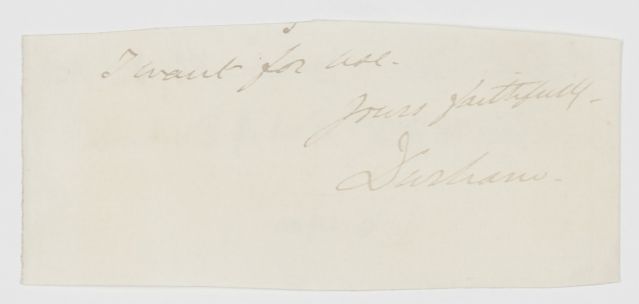 I want for use.
Yours faithfully
Durham